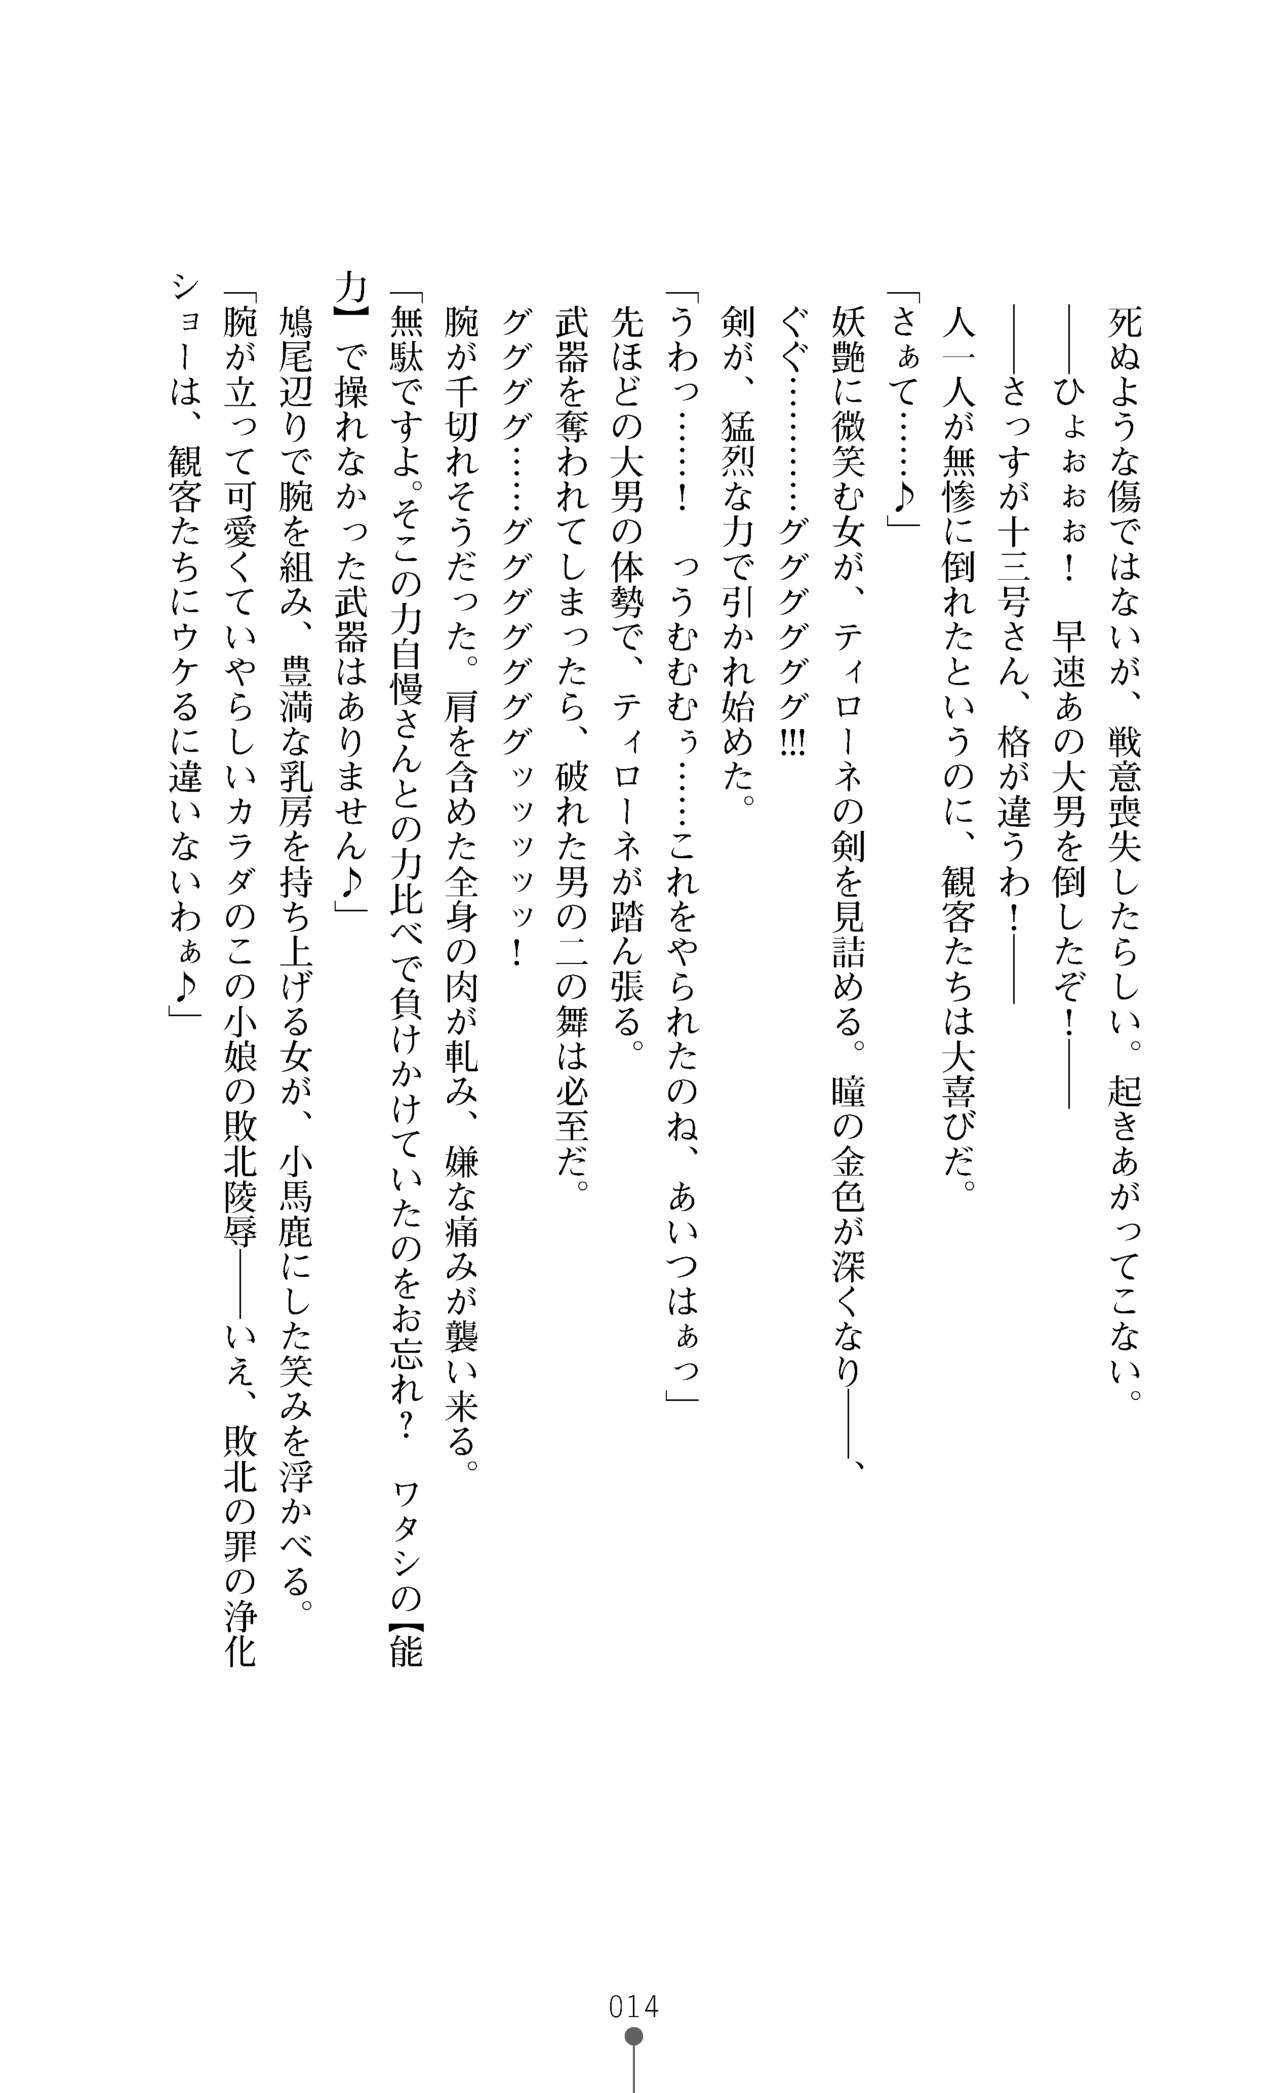 死ぬような傷ではないが、戦意喪失したらしい。起きあがってこない。
――ひょぉぉぉ！　早速あの大男を倒したぞ！――
――さっすが十三号さん、格が違うわ！――
人一人が無惨に倒れたというのに、観客たちは大喜びだ。
「さぁて……♪」
妖艶に微笑む女が、ティローネの剣を見詰める。瞳の金色が深くなり――、
ぐぐ…………グググググ!!!
剣が、猛烈な力で引かれ始めた。
「うわっ……！　っうむむむぅ……これをやられたのね、あいつはぁっ」
先ほどの大男の体勢で、ティローネが踏ん張る。
武器を奪われてしまったら、破れた男の二の舞は必至だ。
ググググ……グググググググッッッッ！
腕が千切れそうだった。肩を含めた全身の肉が軋み、嫌な痛みが襲い来る。
「無駄ですよ。そこの力自慢さんとの力比べで負けかけていたのをお忘れ？　ワタシの【能
力】で操れなかった武器はありません♪」
鳩尾辺りで腕を組み、豊満な乳房を持ち上げる女が、小馬鹿にした笑みを浮かべる。
「腕が立って可愛くていやらしいカラダのこの小娘の敗北陵辱――いえ、敗北の罪の浄化
ショーは、観客たちにウケるに違いないわぁ♪」
014